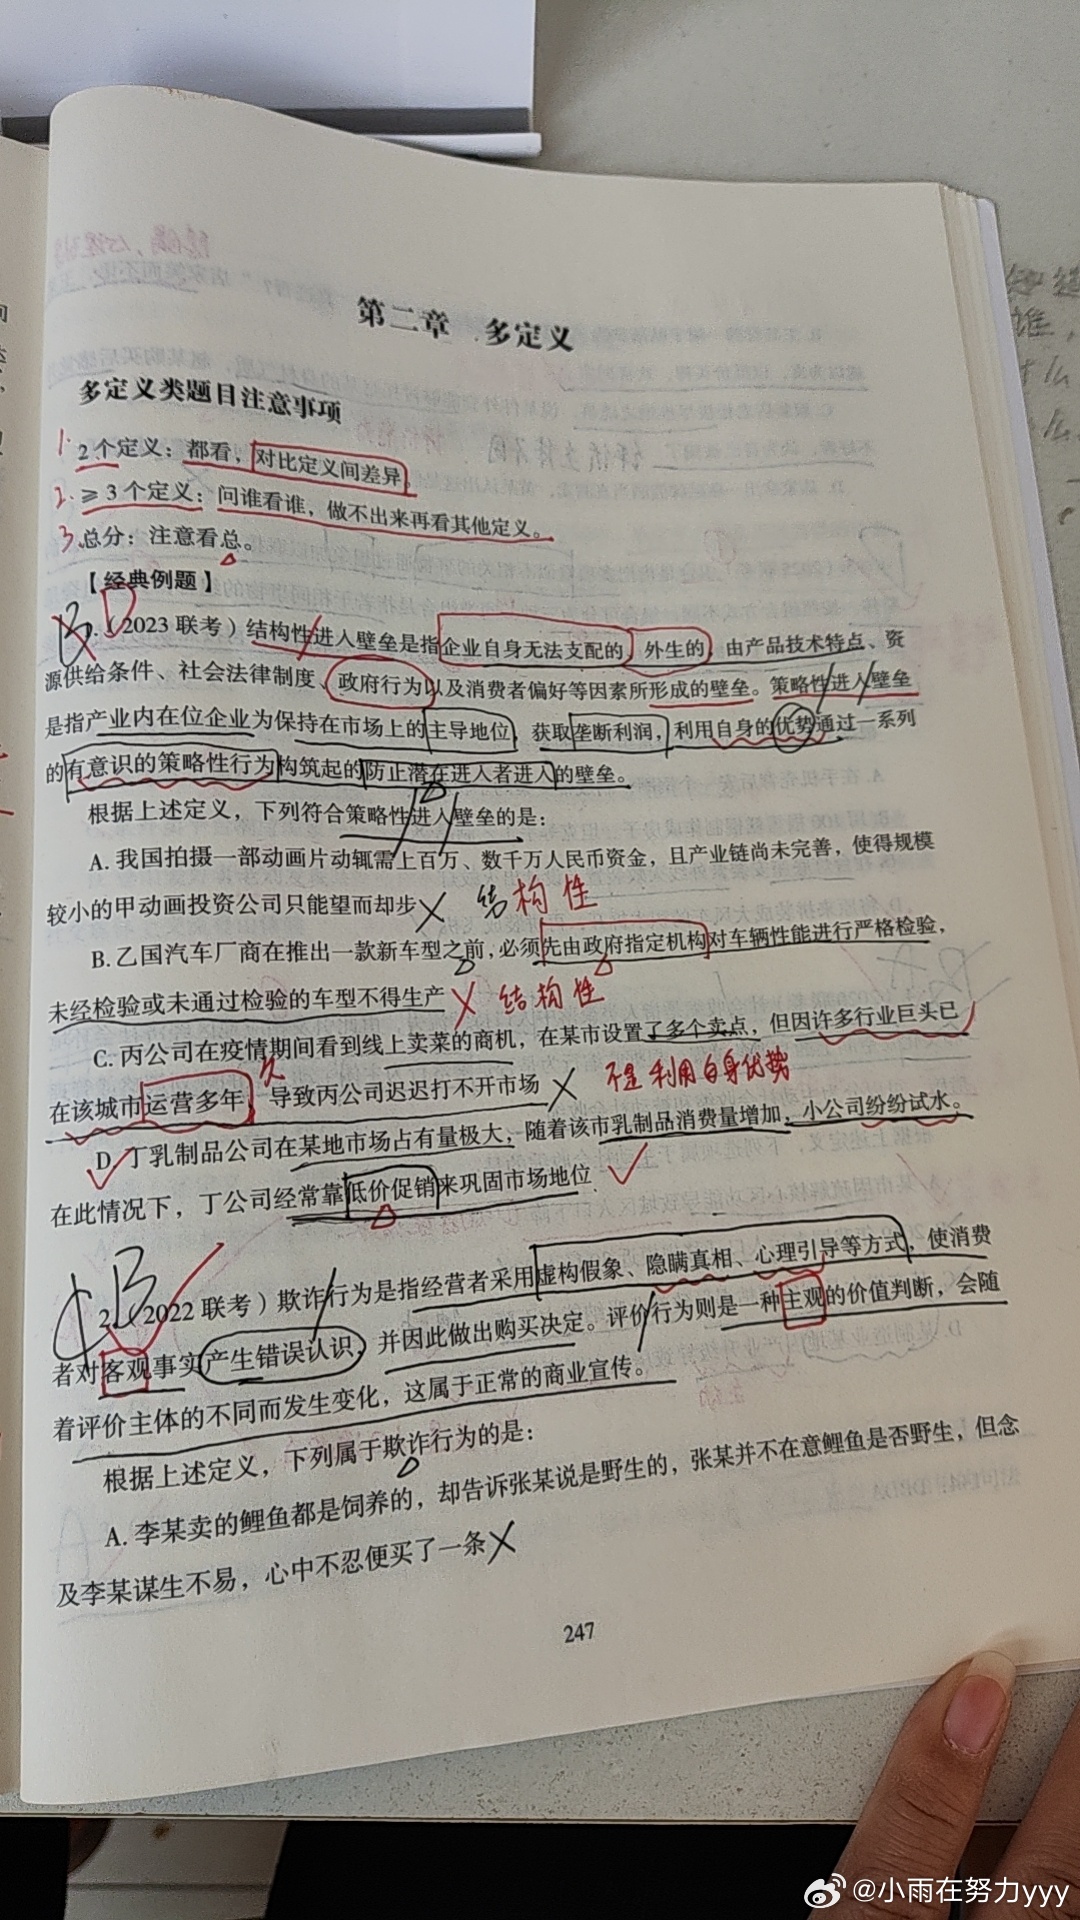 第二章 多定义
多定义类题目注意事项
1. 2个定义：都看，对比定义间差异。
2. ≥3个定义：问谁看谁，做不出来再看其他定义。
3. 总分：注意看总。
【经典例题】
B D
1.（2023 联考）结构性进入壁垒是指企业自身无法支配的、外生的，由产品技术特点、资
源供给条件、社会法律制度、政府行为以及消费者偏好等因素所形成的壁垒。策略性进入壁垒
是指产业内在位企业为保持在市场上的主导地位，获取垄断利润，利用自身的优势通过一系列
的有意识的策略性行为构筑起的防止潜在进入者进入的壁垒。
根据上述定义，下列符合策略性进入壁垒的是：
A. 我国拍摄一部动画片动辄需上百万、数千万人民币资金，且产业链尚未完善，使得规模
较小的甲动画投资公司只能望而却步 结构性
B. 乙国汽车厂商在推出一款新车型之前，必须先由政府指定机构对车辆性能进行严格检验，
未经检验或未通过检验的车型不得生产 结构性
C. 丙公司在疫情期间看到线上卖菜的商机，在某市设置了多个卖点，但因许多行业巨头已
在该城市运营多年，导致丙公司迟迟打不开市场 不是利用自身优势
D. 丁乳制品公司在某地市场占有量极大，随着该市乳制品消费量增加，小公司纷纷试水。
在此情况下，丁公司经常靠低价促销来巩固市场地位
B
2.（2022 联考）欺诈行为是指经营者采用虚构假象、隐瞒真相、心理引导等方式，使消费
者对客观事实产生错误认识，并因此做出购买决定。评价行为则是一种主观的价值判断，会随
着评价主体的不同而发生变化，这属于正常的商业宣传。
根据上述定义，下列属于欺诈行为的是：
A. 李某卖的鲤鱼都是饲养的，却告诉张某说是野生的，张某并不在意鲤鱼是否野生，但念
及李某谋生不易，心中不忍便买了一条
247
@小雨在努力yyy